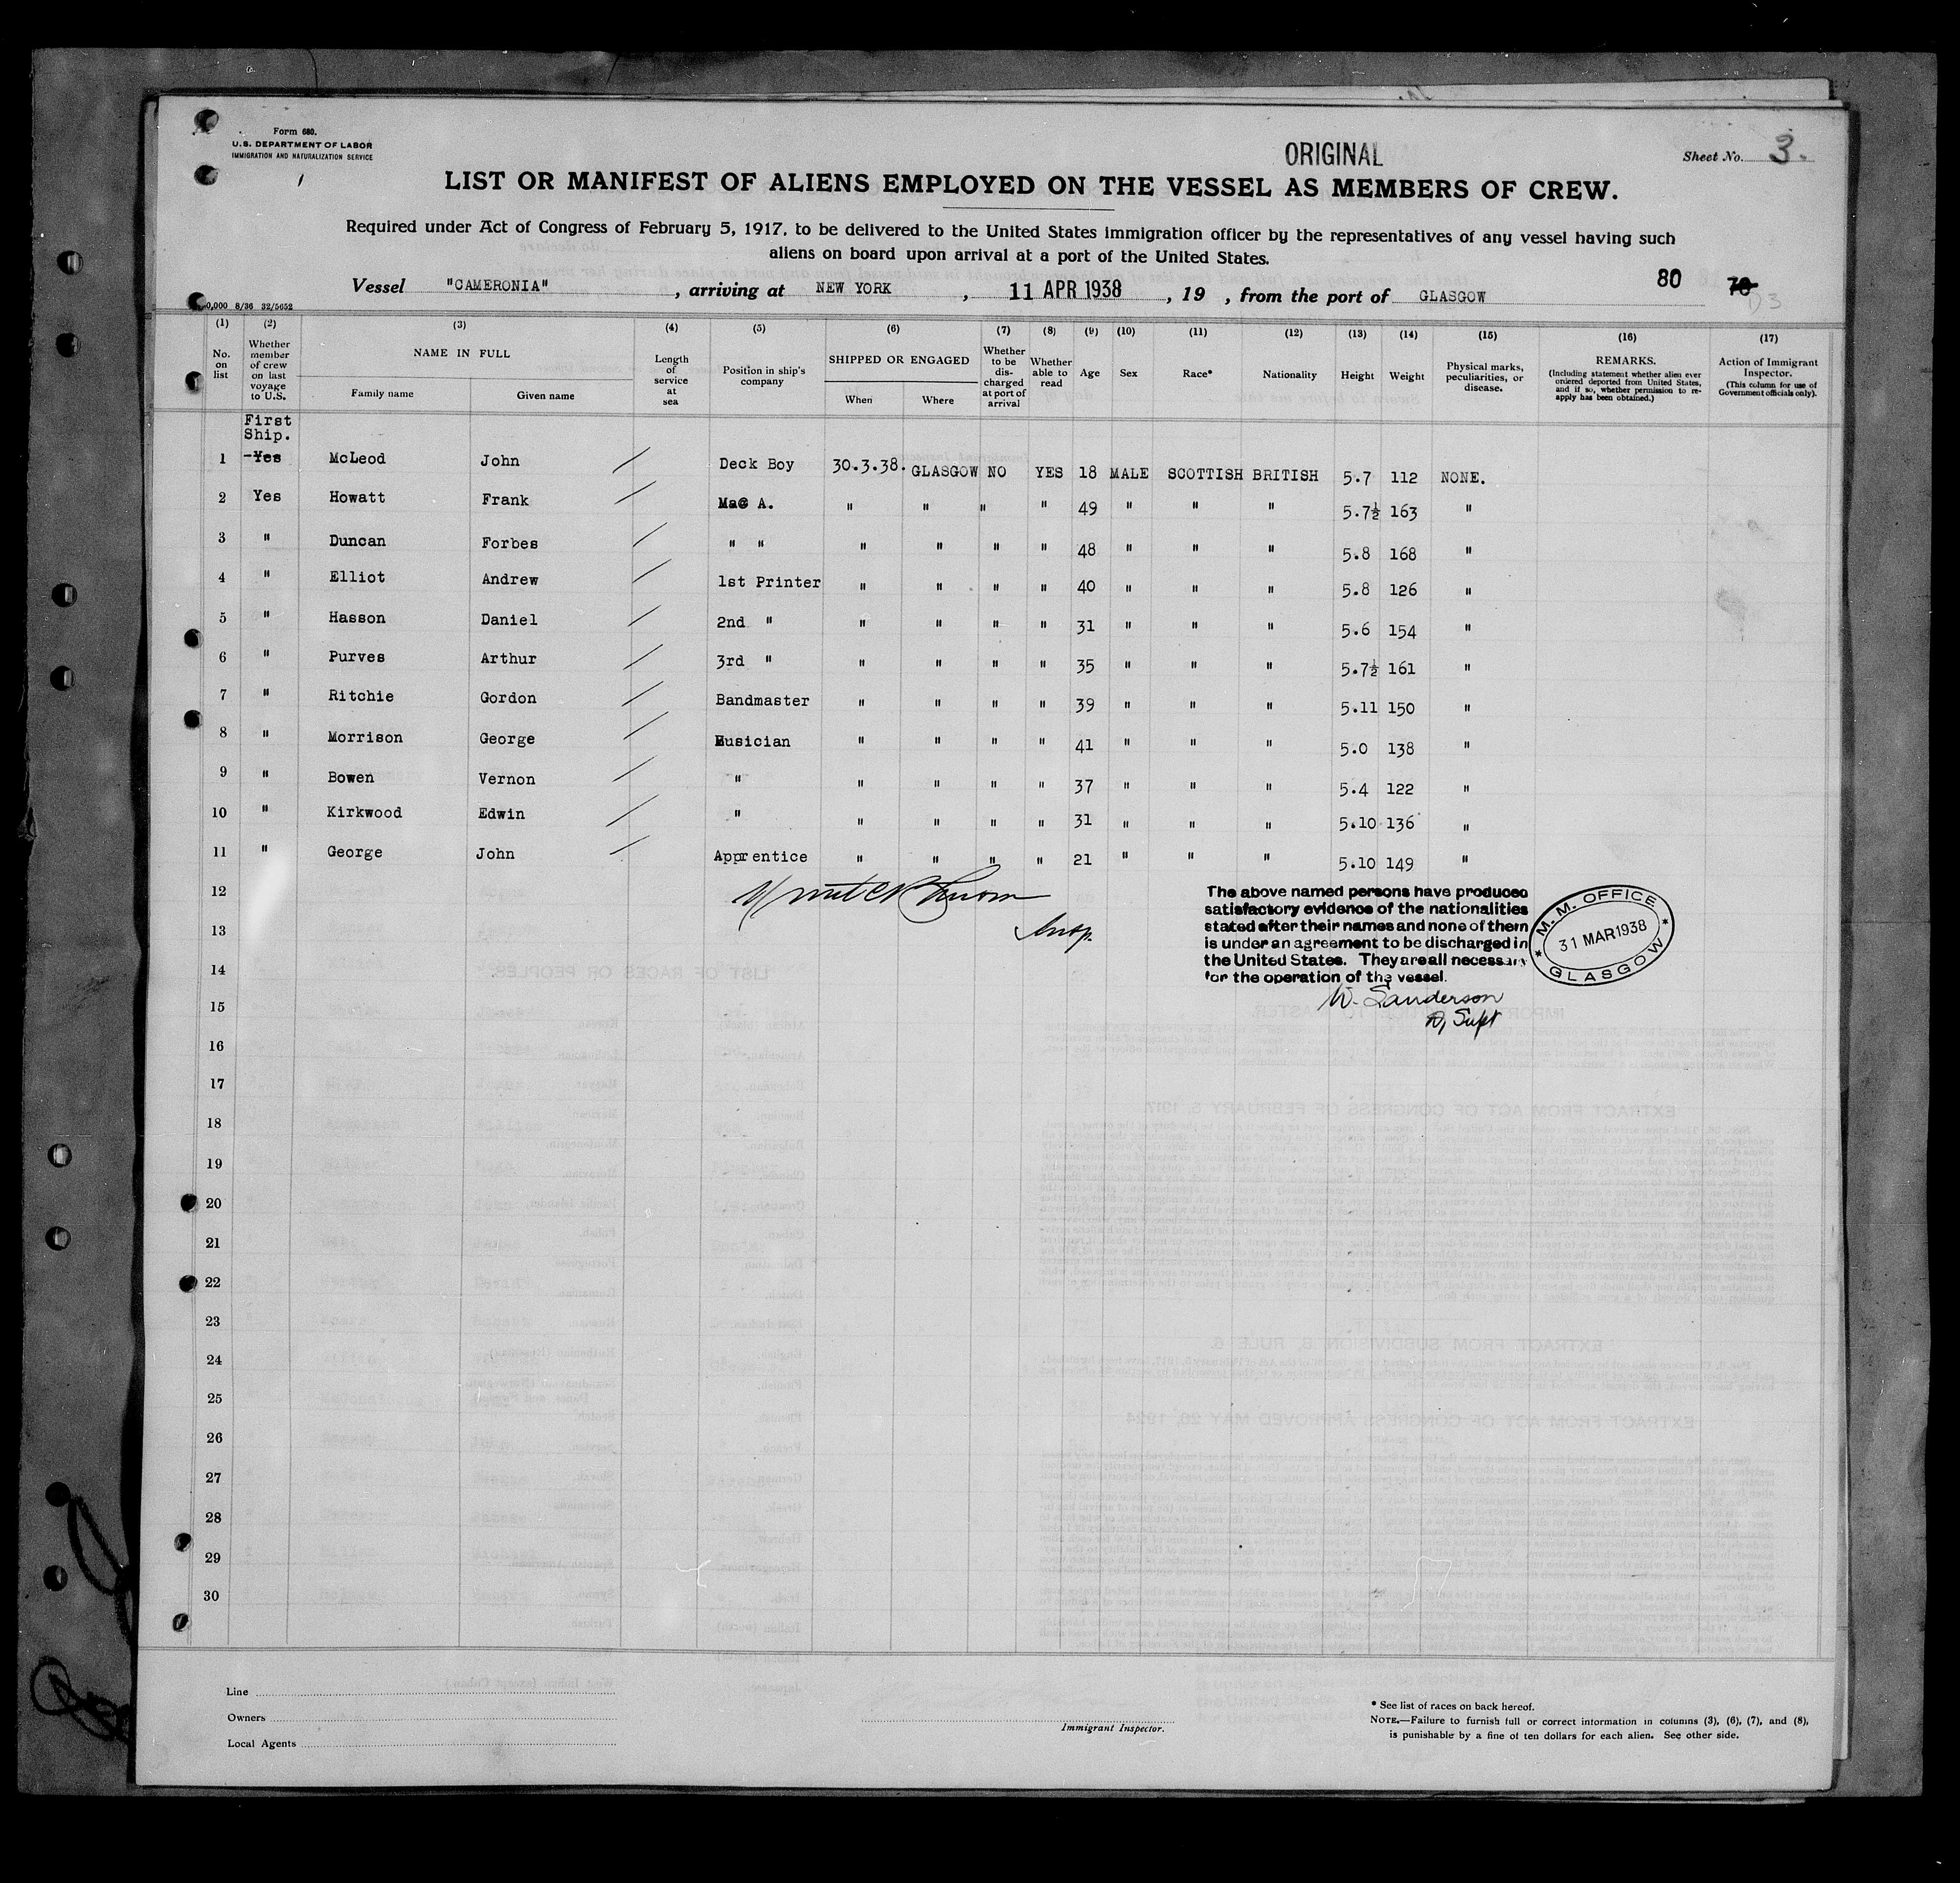 Form 680.
U.S. DEPARTMENT OF LABOR
IMMIGRATION AND NATURALIZATION SERVICE
ORIGINAL
Sheet No. 3.
LIST OR MANIFEST OF ALIENS EMPLOYED ON THE VESSEL AS MEMBERS OF CREW.
Required under Act of Congress of February 5, 1917, to be delivered to the United States immigration officer by the representatives of any vessel having such
aliens on board upon arrival at a port of the United States.
Vessel "CAMERONIA", arriving at NEW YORK, 11 APR 1938, 19 , from the port of GLASGOW 80 78
D3
0,000 8/36 32/5652
(1) (2) (3) (4) (5) (6) (7) (8) (9) (10) (11) (12) (13) (14) (15) (16) (17)
No. on list
Whether member of crew on last voyage to U.S.
NAME IN FULL
Family name Given name
Length of service at sea
Position in ship's company
SHIPPED OR ENGAGED
When Where
Whether to be discharged at port of arrival
Whether able to read
Age
Sex
Race*
Nationality
Height
Weight
Physical marks, peculiarities, or disease.
REMARKS.
(Including statement whether alien ever ordered deported from United States, and if so, whether permission to re-apply has been obtained.)
Action of Immigrant Inspector.
(This column for use of Government officials only).
First
Ship.
1 -Yes McLeod John / Deck Boy 30.3.38. GLASGOW NO YES 18 MALE SCOTTISH BRITISH 5.7 112 NONE.
2 Yes Howatt Frank / A. " " " " 49 " " " 5.7½ 163 "
3 " Duncan Forbes / " " " " " " 48 " " " 5.8 168 "
4 " Elliot Andrew / 1st Printer " " " " 40 " " " 5.8 126 "
5 " Hasson Daniel / 2nd " " " " " 31 " " " 5.6 154 "
6 " Purves Arthur / 3rd " " " " " 35 " " " 5.7½ 161 "
7 " Ritchie Gordon / Bandmaster " " " " 39 " " " 5.11 150 "
8 " Morrison George / Musician " " " " 41 " " " 5.0 138 "
9 " Bowen Vernon / " " " " " 37 " " " 5.4 122 "
10 " Kirkwood Edwin / " " " " " 31 " " " 5.10 136 "
11 " George John / Apprentice " " " " 21 " " " 5.10 149 "
12
13
14
15
16
17
18
19
20
21
22
23
24
25
26
27
28
29
30
Insp.
The above named persons have produced
satisfactory evidence of the nationalities
stated after their names and none of them
is under an agreement to be discharged in
the United States. They are all necessary
for the operation of the vessel.
W. Sanderson
D, Supt
M. M. OFFICE
31 MAR 1938
GLASGOW
Line
Owners
Local Agents
Immigrant Inspector.
* See list of races on back hereof.
NOTE.—Failure to furnish full or correct information in columns (3), (6), (7), and (8),
is punishable by a fine of ten dollars for each alien. See other side.